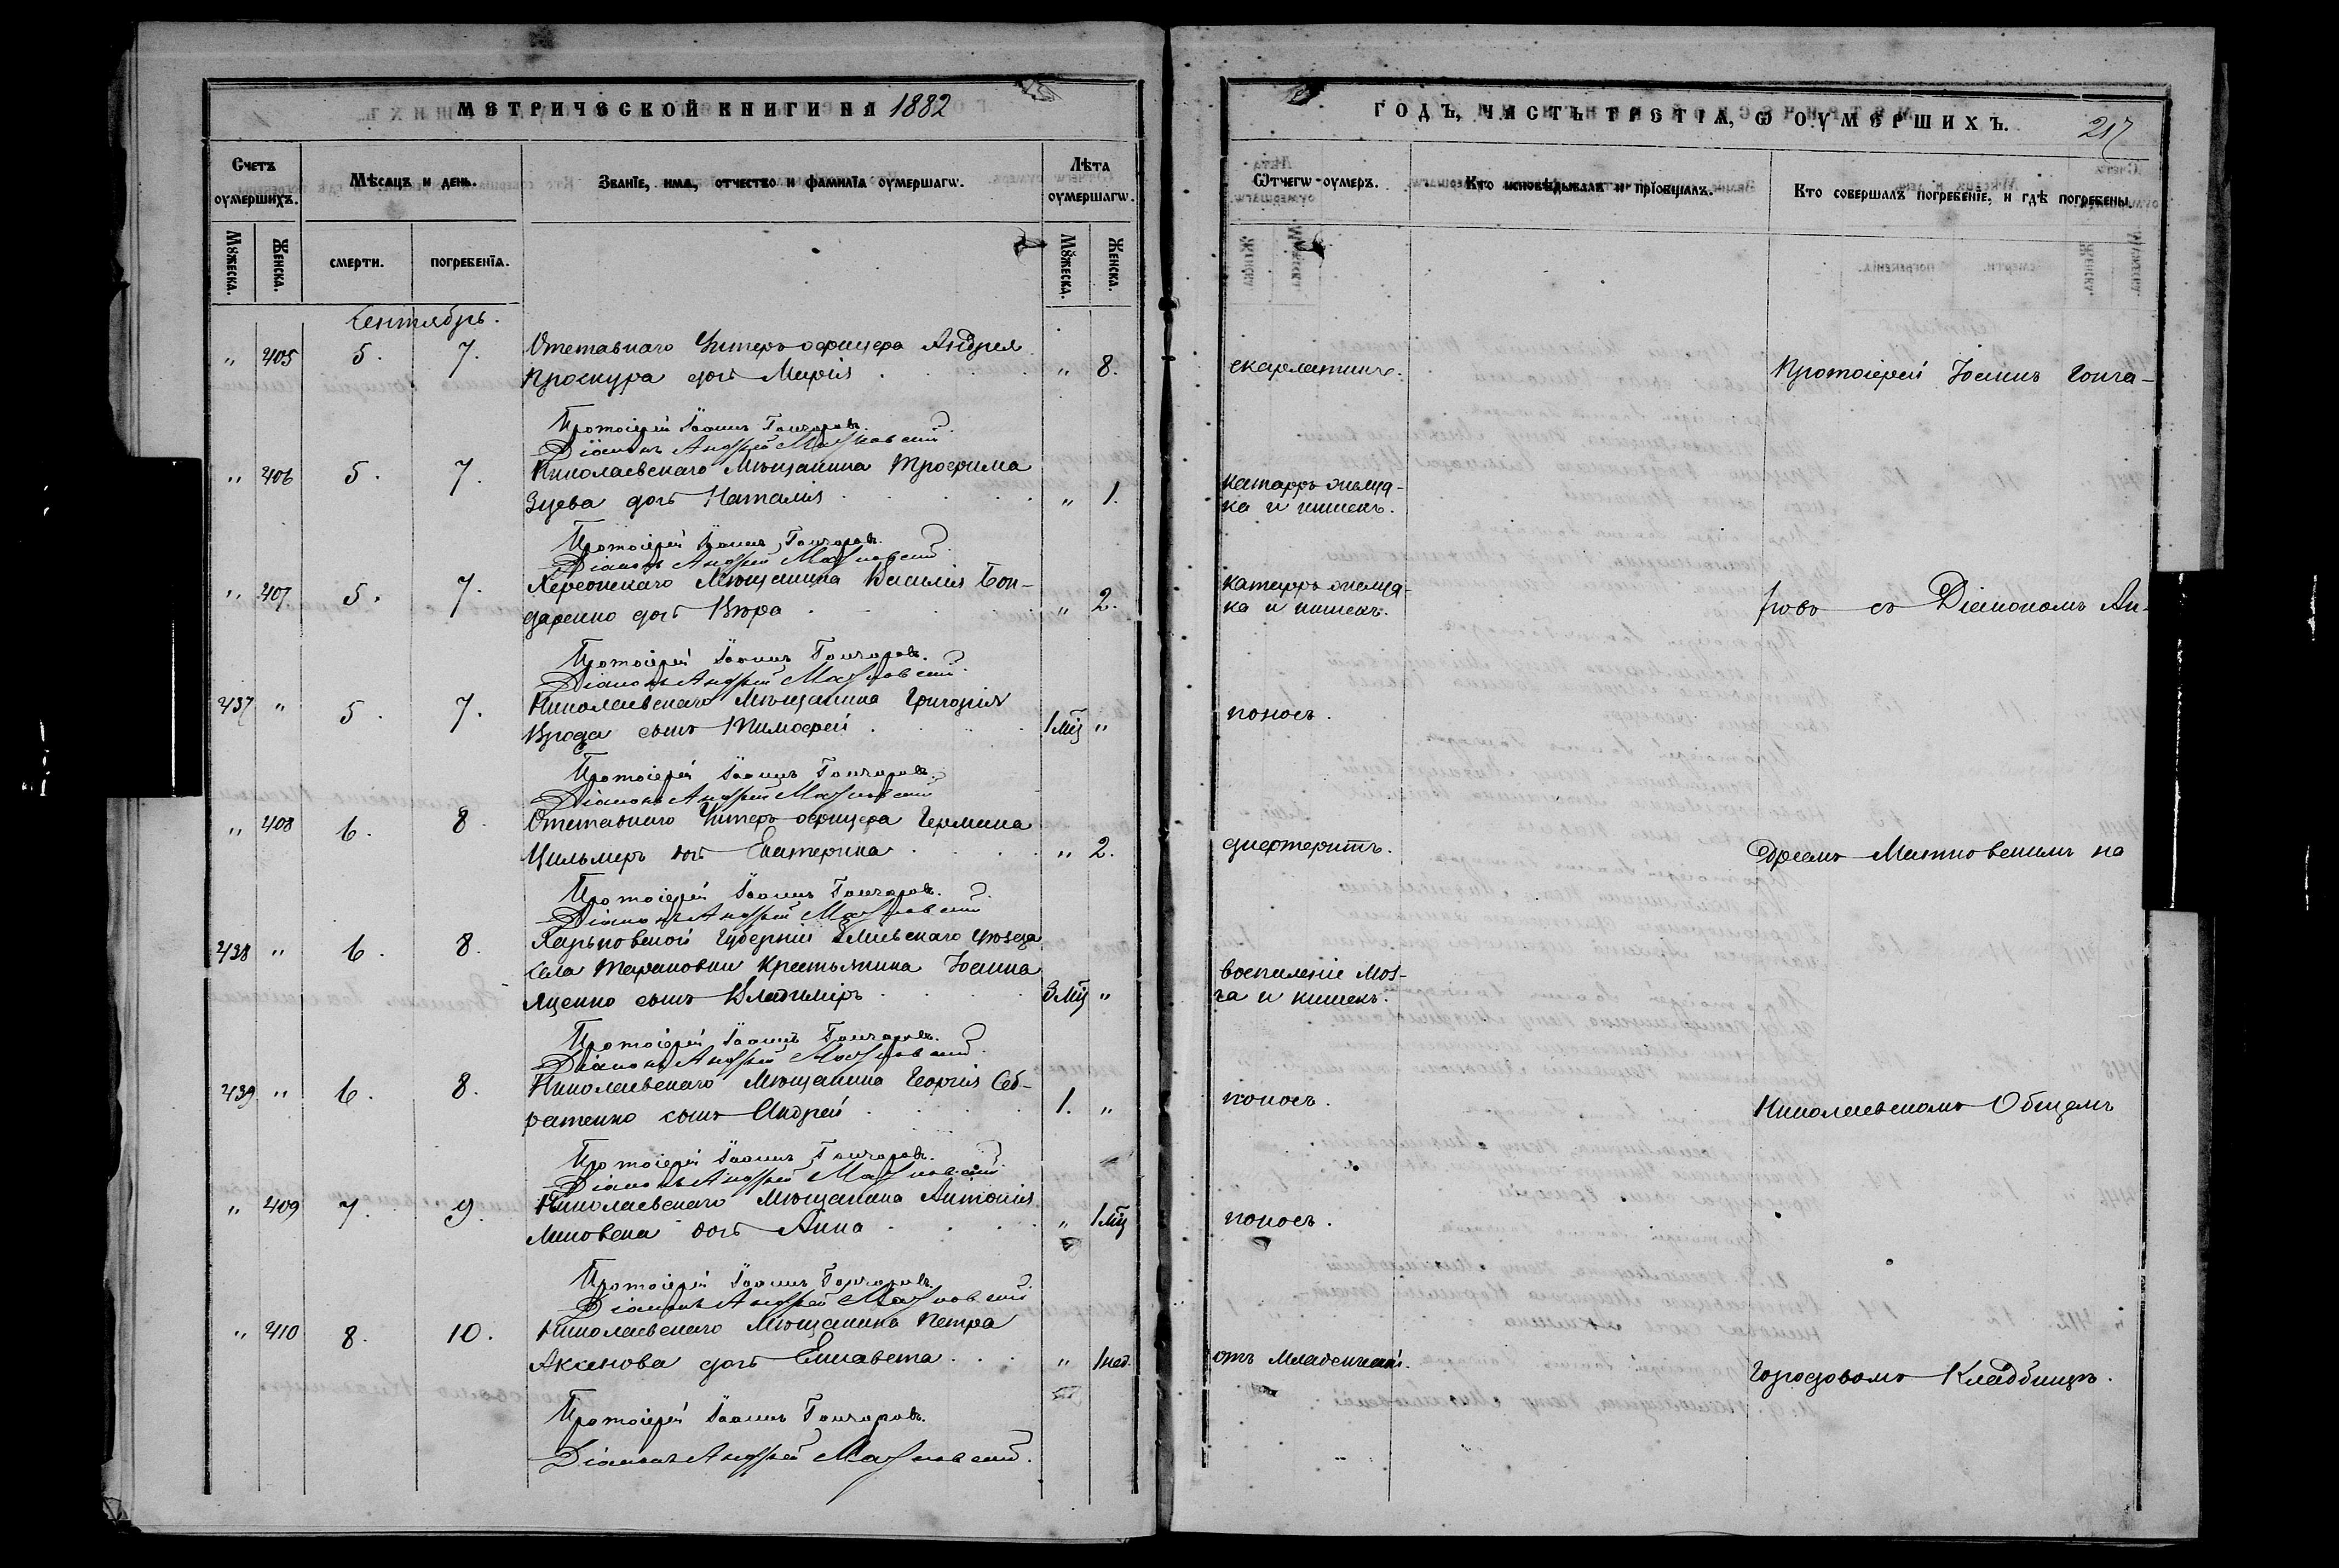 МЕТРИЧЕСКОЙ КНИГИ НА 1882
Счетъ оумершихъ.
Мѣсяцъ и день.
Званїе, имя, отчество и фамилїа оумершагѡ.
Лѣта оумершагѡ.
Мꙋжеска.
Женска.
смерти.
погребенїя.
Мꙋжеска.
Женска.
Сентябрь.
" 405 5. 7. Отставнаго Унтеръ-офицера Андрея
Проскура дочь Марія " 8.
Протоіерей Іоаннъ Гончаровъ.
Діаконъ Андрей
" 406 5. 7. Николаевскаго Мѣщанина Трофима
Зуева дочь Наталія " 1.
Протоіерей Іоаннъ Гончаровъ.
Діаконъ Андрей
" 407. 5. 7. Херсонскаго Мѣщанина Василія Бон-
даренко дочь Вѣра " 2.
Протоіерей Іоаннъ Гончаровъ.
Діаконъ Андрей
437 " 5. 7. Николаевскаго Мѣщанина Григорія
сынъ Тимофей 1 мц "
Протоіерей Іоаннъ Гончаровъ.
Діаконъ Андрей
" 408 6. 8. Отставнаго Унтеръ-офицера Германа
Цильмеръ дочь Екатерина " 2.
Протоіерей Іоаннъ Гончаровъ.
Діаконъ Андрей
438 " 6. 8. Харьковской Губерніи Зміевскаго уѣзда
села Тарановки Крестьянина Іоанна
Яценко сынъ Владиміръ 3 мц "
Протоіерей Іоаннъ Гончаровъ.
Діаконъ Андрей
439 " 6. 8. Николаевскаго Мѣщанина Георгія Себ-
ратенко сынъ Андрей 1. "
Протоіерей Іоаннъ Гончаровъ.
Діаконъ Андрей
" 409 7. 9. Николаевскаго Мѣщанина Антонія
дочь Анна " 1 мц
Протоіерей Іоаннъ Гончаровъ.
Діаконъ Андрей
" 410 8. 10. Николаевскаго Мѣщанина Петра
Аксенова дочь Елисавета " 1 нед.
Протоіерей Іоаннъ Гончаровъ.
Діаконъ Андрей
ГОДЪ, ЧАСТЬ ТРЕТІЯ, Ѡ ОУМЕРШИХЪ. 217
Ѿчегѡ оумеръ.
Кто исповѣдывалъ и прїобщалъ.
Кто совершалъ погребенїе, и гдѣ погребены.
скарлатины. Протоіерей Іоаннъ Гонча-
катарръ желуд-
ка и кишекъ.
катарръ желуд-
ка и кишекъ. ровъ съ Діакономъ Ан-
поносъ.
дифтеритъ. дреемъ на
воспаленіе моз-
га и кишекъ.
поносъ. Николаевскомъ Общемъ
поносъ.
отъ младенческой. Городовомъ Кладбищѣ.